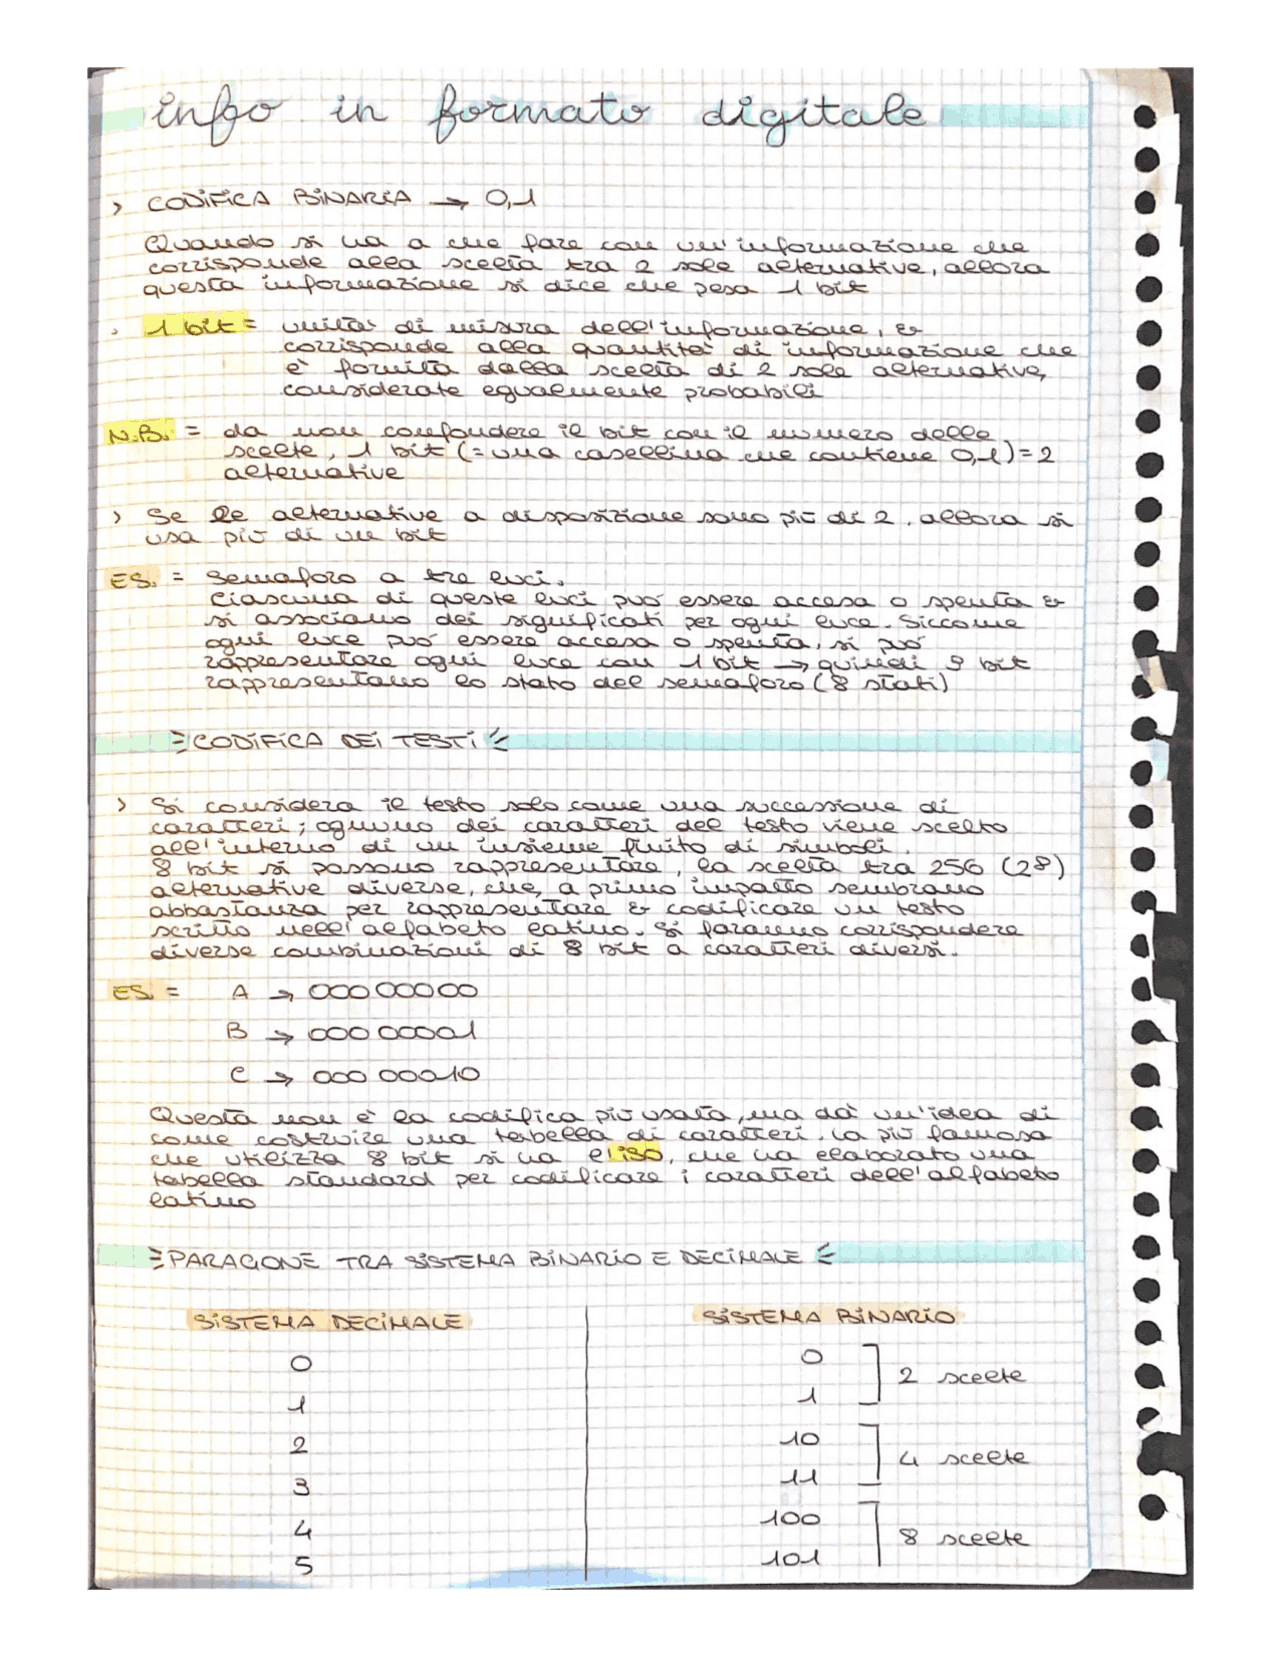 info in formato digitale
> CODIFICA BINARIA → 0,1
Quando si ha a che fare con un'informazione che
corrisponde alla scelta tra 2 sole alternative, allora
questa informazione si dice che pesa 1 bit
. 1 bit = unità di misura dell'informazione, &
corrisponde alla quantità di informazione che
è fornita dalla scelta di 2 sole alternative,
considerate egualmente probabili
N.B. = da non confondere il bit con il numero delle
scelte, 1 bit (= una casellina che contiene 0,1) = 2
alternative
> Se le alternative a disposizione sono più di 2, allora si
usa più di un bit
ES. = Semaforo a tre luci.
Ciascuna di queste luci può essere accesa o spenta &
si associano dei significati per ogni luce. Siccome
ogni luce può essere accesa o spenta, si può
rappresentare ogni luce con 1 bit → quindi 3 bit
rappresentano lo stato del semaforo (8 stati)
CODIFICA DEI TESTI
> Si considera il testo solo come una successione di
caratteri; ognuno dei caratteri del testo viene scelto
all'interno di un insieme finito di simboli.
8 bit si possono rappresentare, la scelta tra 256 (28)
alternative diverse, che, a primo impatto sembrano
abbastanza per rappresentare & codificare un testo
scritto nell'alfabeto latino. Si faranno corrispondere
diverse combinazioni di 8 bit a caratteri diversi.
ES. = A → 000 00000
B → 000 00001
C → 000 00010
Questa non è la codifica più usata, ma dà un'idea di
come costruire una tabella di caratteri. La più famosa
che utilizza 8 bit si ha l'ISO, che ha elaborato una
tabella standard per codificare i caratteri dell'alfabeto
latino
PARAGONE TRA SISTEMA BINARIO E DECIMALE
SISTEMA DECIMALE SISTEMA BINARIO
0 0
1 1 2 scelte
2 10
3 11 4 scelte
4 100
5 101 8 scelte